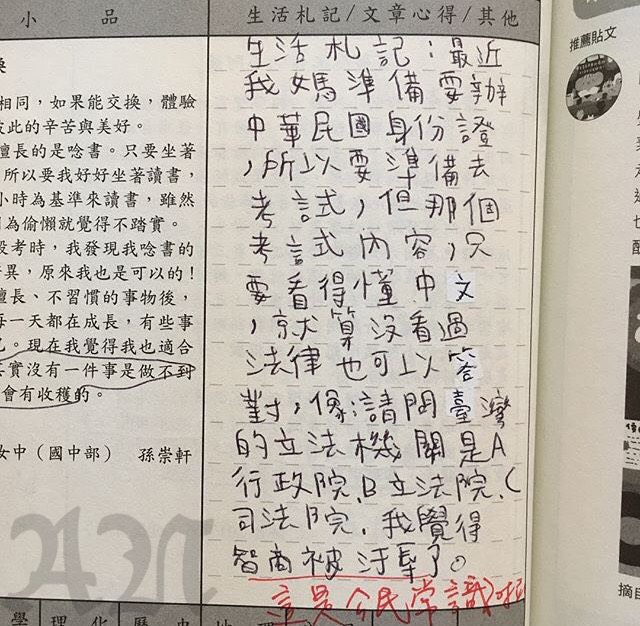 小品
生活札記/文章心得/其他
相同，如果能交換，體驗
彼此的辛苦與美好。
擅長的是唸書。只要坐著
所以要我好好坐著讀書，
小時為基準來讀書，雖然
因為偷懶就覺得不踏實。
段考時，我發現我唸書的
異，原來我也是可以的！
擅長、不習慣的事物後，
每一天都在成長，有些事
。現在我覺得我也適合
其實沒有一件事是做不到
會有收穫的。
女中（國中部） 孫崇軒
生活札記：最近
我媽準備要辦
中華民國身份證
，所以要準備去
考試，但那個
考試內容，只
要看得懂中文
，就算沒看過
法律也可以答
對，像：請問臺灣
的立法機關是A
行政院、B立法院、C
司法院，我覺得
智商被汙辱了。
這是公民常識啦
推薦貼文
摘自
AN